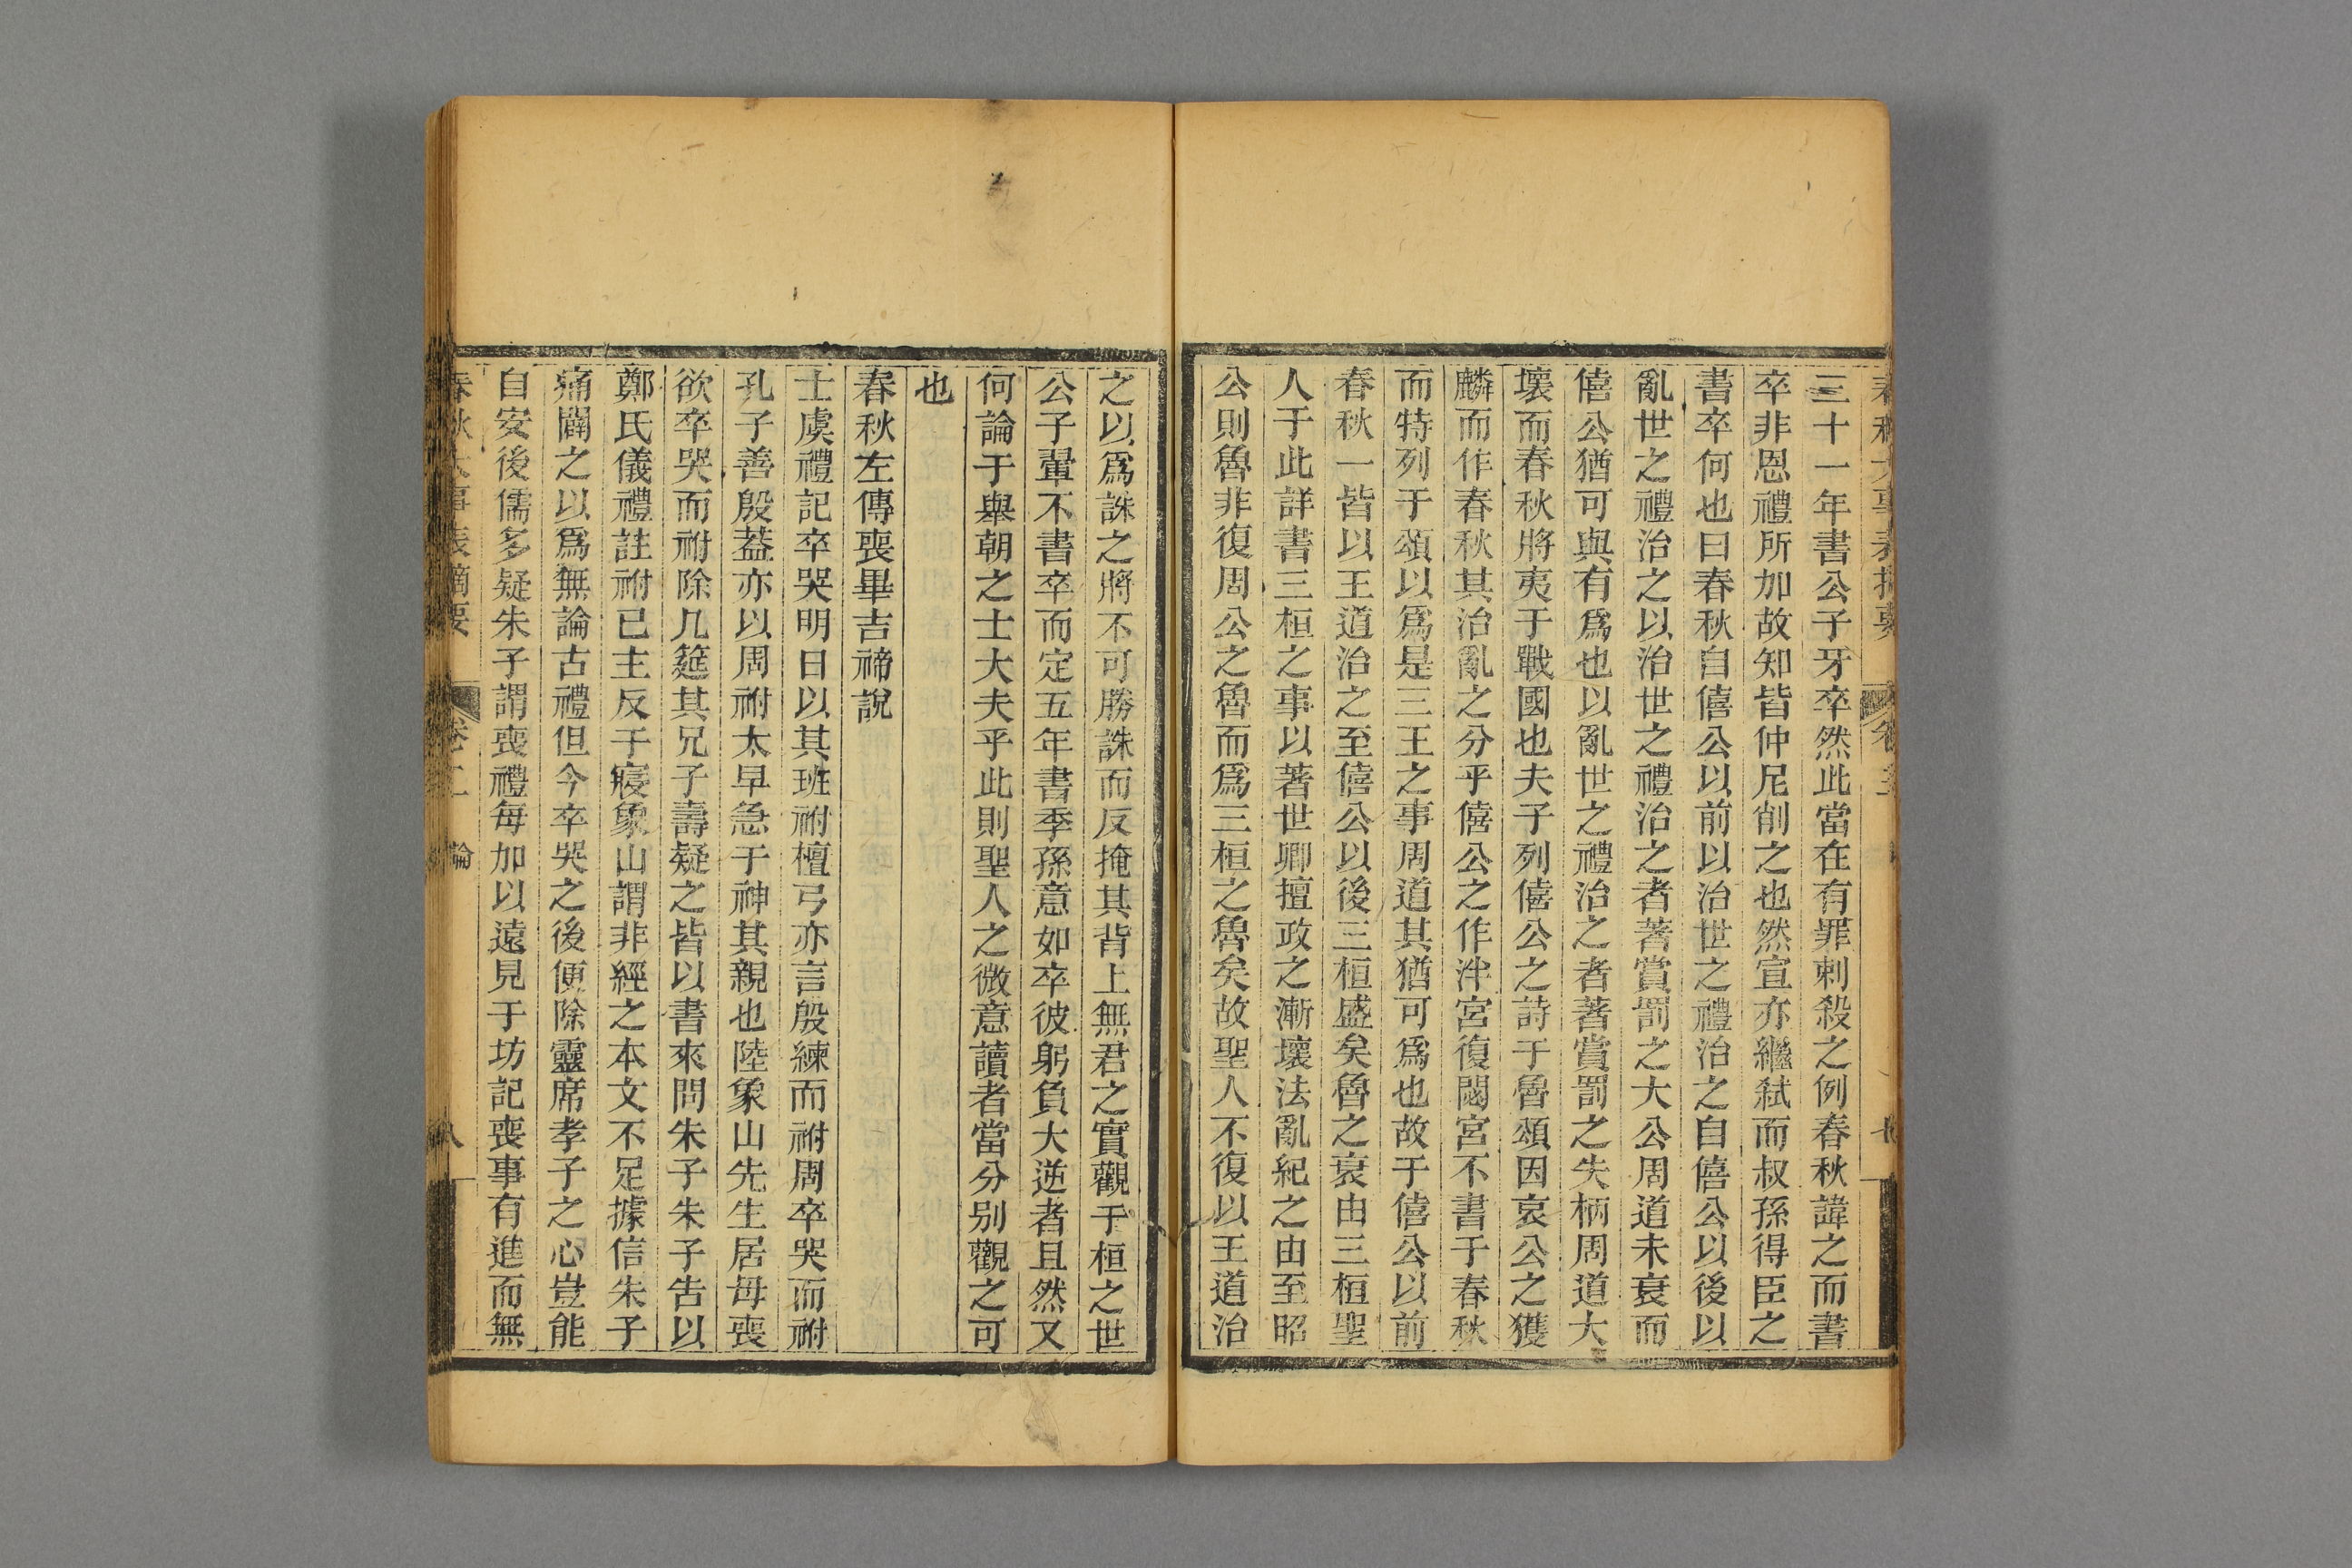 三十一年書公子牙卒然此當在有罪刺殺之例春秋諱之而書
卒非恩禮所加故知皆仲尼削之也然宣亦繼弒而叔孫得臣之
書卒何也曰春秋自僖公以前以治世之禮治之自僖公以後以
亂世之禮治之以治世之禮治之者著賞罰之大公周道未衰而
僖公猶可與有爲也以亂世之禮治之者著賞罰之失柄周道大
壞而春秋將夷于戰國也夫子列僖公之詩于魯頌因哀公之獲
麟而作春秋其治亂之分乎僖公之作泮宮復閟宮不書于春秋
而特列于頌以爲是三王之事周道其猶可爲也故于僖公以前
春秋一皆以王道治之至僖公以後三桓盛矣魯之衰由三桓聖
人于此詳書三桓之事以著世卿擅政之漸壞法亂紀之由至昭
公則魯非復周公之魯而爲三桓之魯矣故聖人不復以王道治
之以爲誅之將不可勝誅而反掩其背上無君之實觀于桓之世
公子翬不書卒而定五年書季孫意如卒彼躬負大逆者且然又
何論于舉朝之士大夫乎此則聖人之微意讀者當分别觀之可
也
春秋左傳喪畢吉禘說
士虞禮記卒哭明日以其班祔檀弓亦言殷練而祔周卒哭而祔
孔子善殷葢亦以周祔太早急于神其親也陸象山先生居母喪
欲卒哭而祔除几筵其兄子壽疑之皆以書來問朱子朱子告以
鄭氏儀禮註祔已主反于寢象山謂非經之本文不足據信朱子
痛闢之以爲無論古禮但今卒哭之後便除靈席孝子之心豈能
自安後儒多疑朱子謂喪禮每加以遠見于坊記喪事有進而無
春秋大事表摘要 卷二 論 八